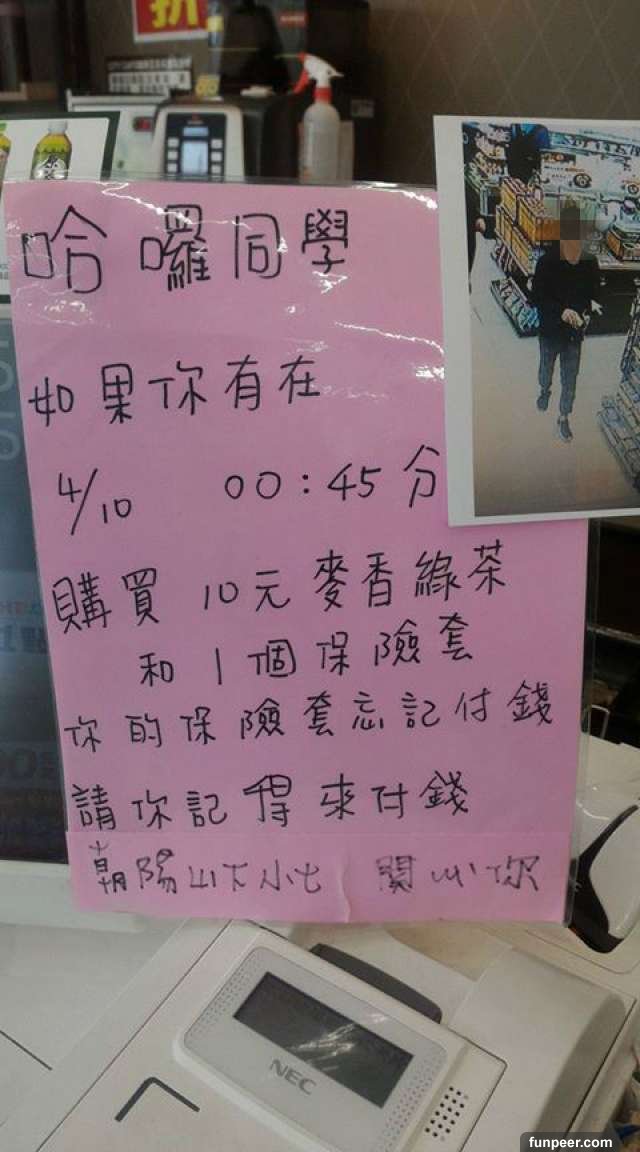 折
哈囉同學
如果你有在
4/10 00:45分
購買10元麥香綠茶
和1個保險套
你的保險套忘記付錢
請你記得來付錢
朝陽山下小七 關心你
NEC
funpeer.com